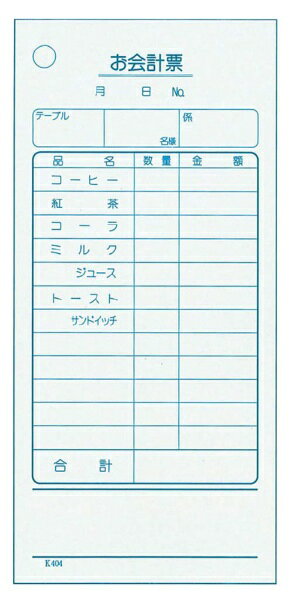 お会計票
月 日 No.
テーブル 名様 係
品名 数量 金額
コーヒー
紅茶
コーラ
ミルク
ジュース
トースト
サンドイッチ
合計
K404